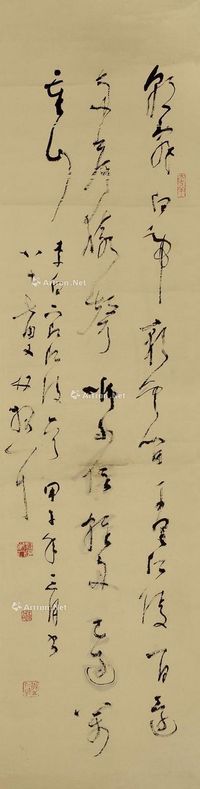 朝辭白帝彩雲間千里江陵一日還
兩岸猿聲啼不住輕舟已過萬
重山
李白 江陵 甲子年三月書
八十
Artron.Net
Artron.Net
Artron.Net
Artron.Net